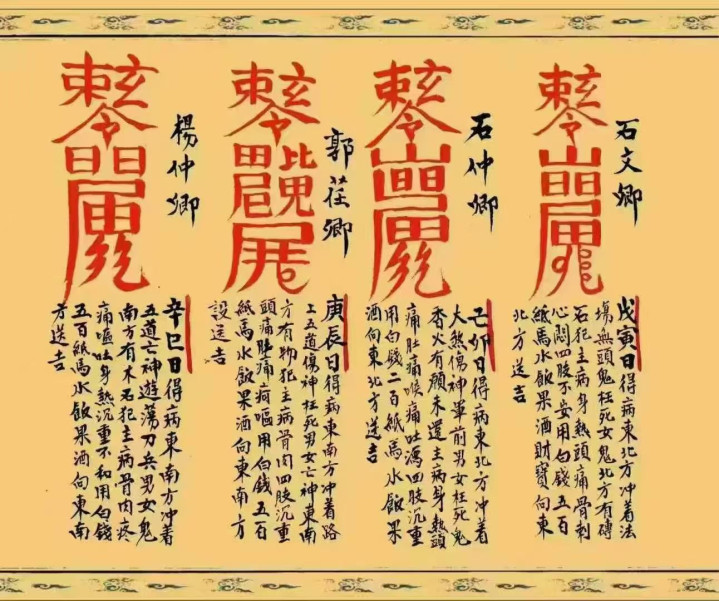 石文卿
戊寅日得病東北方冲着法
塲無頭鬼枉死女鬼北方有磚
石犯主病身熱頭痛骨刺
心悶四肢不安用白錢五百
紙馬水飯果酒財寶向東
北方送吉
石仲卿
己卯日得病東北方冲着
大煞傷神軍前男女枉死鬼
香火有願未還主病身熱頭
痛肚痛喉痛吐瀉四肢沉重
用白錢二百紙馬水飯果
酒向東北方送吉
郭茌卿
庚辰日得病東南方冲着路
上五道傷神枉死男女亡神東南
方有物犯主病骨肉四肢沉重
頭痛肚痛嘔用白錢五百
紙馬水飯果酒向東南方
設送吉
楊仲卿
辛巳日得病東南方冲着
五道亡神遊蕩刀兵男女鬼
南方有木石犯主病骨肉疼
痛嘔吐身熱沉重不和用白錢
五百紙馬水飯果酒向東南
方送吉